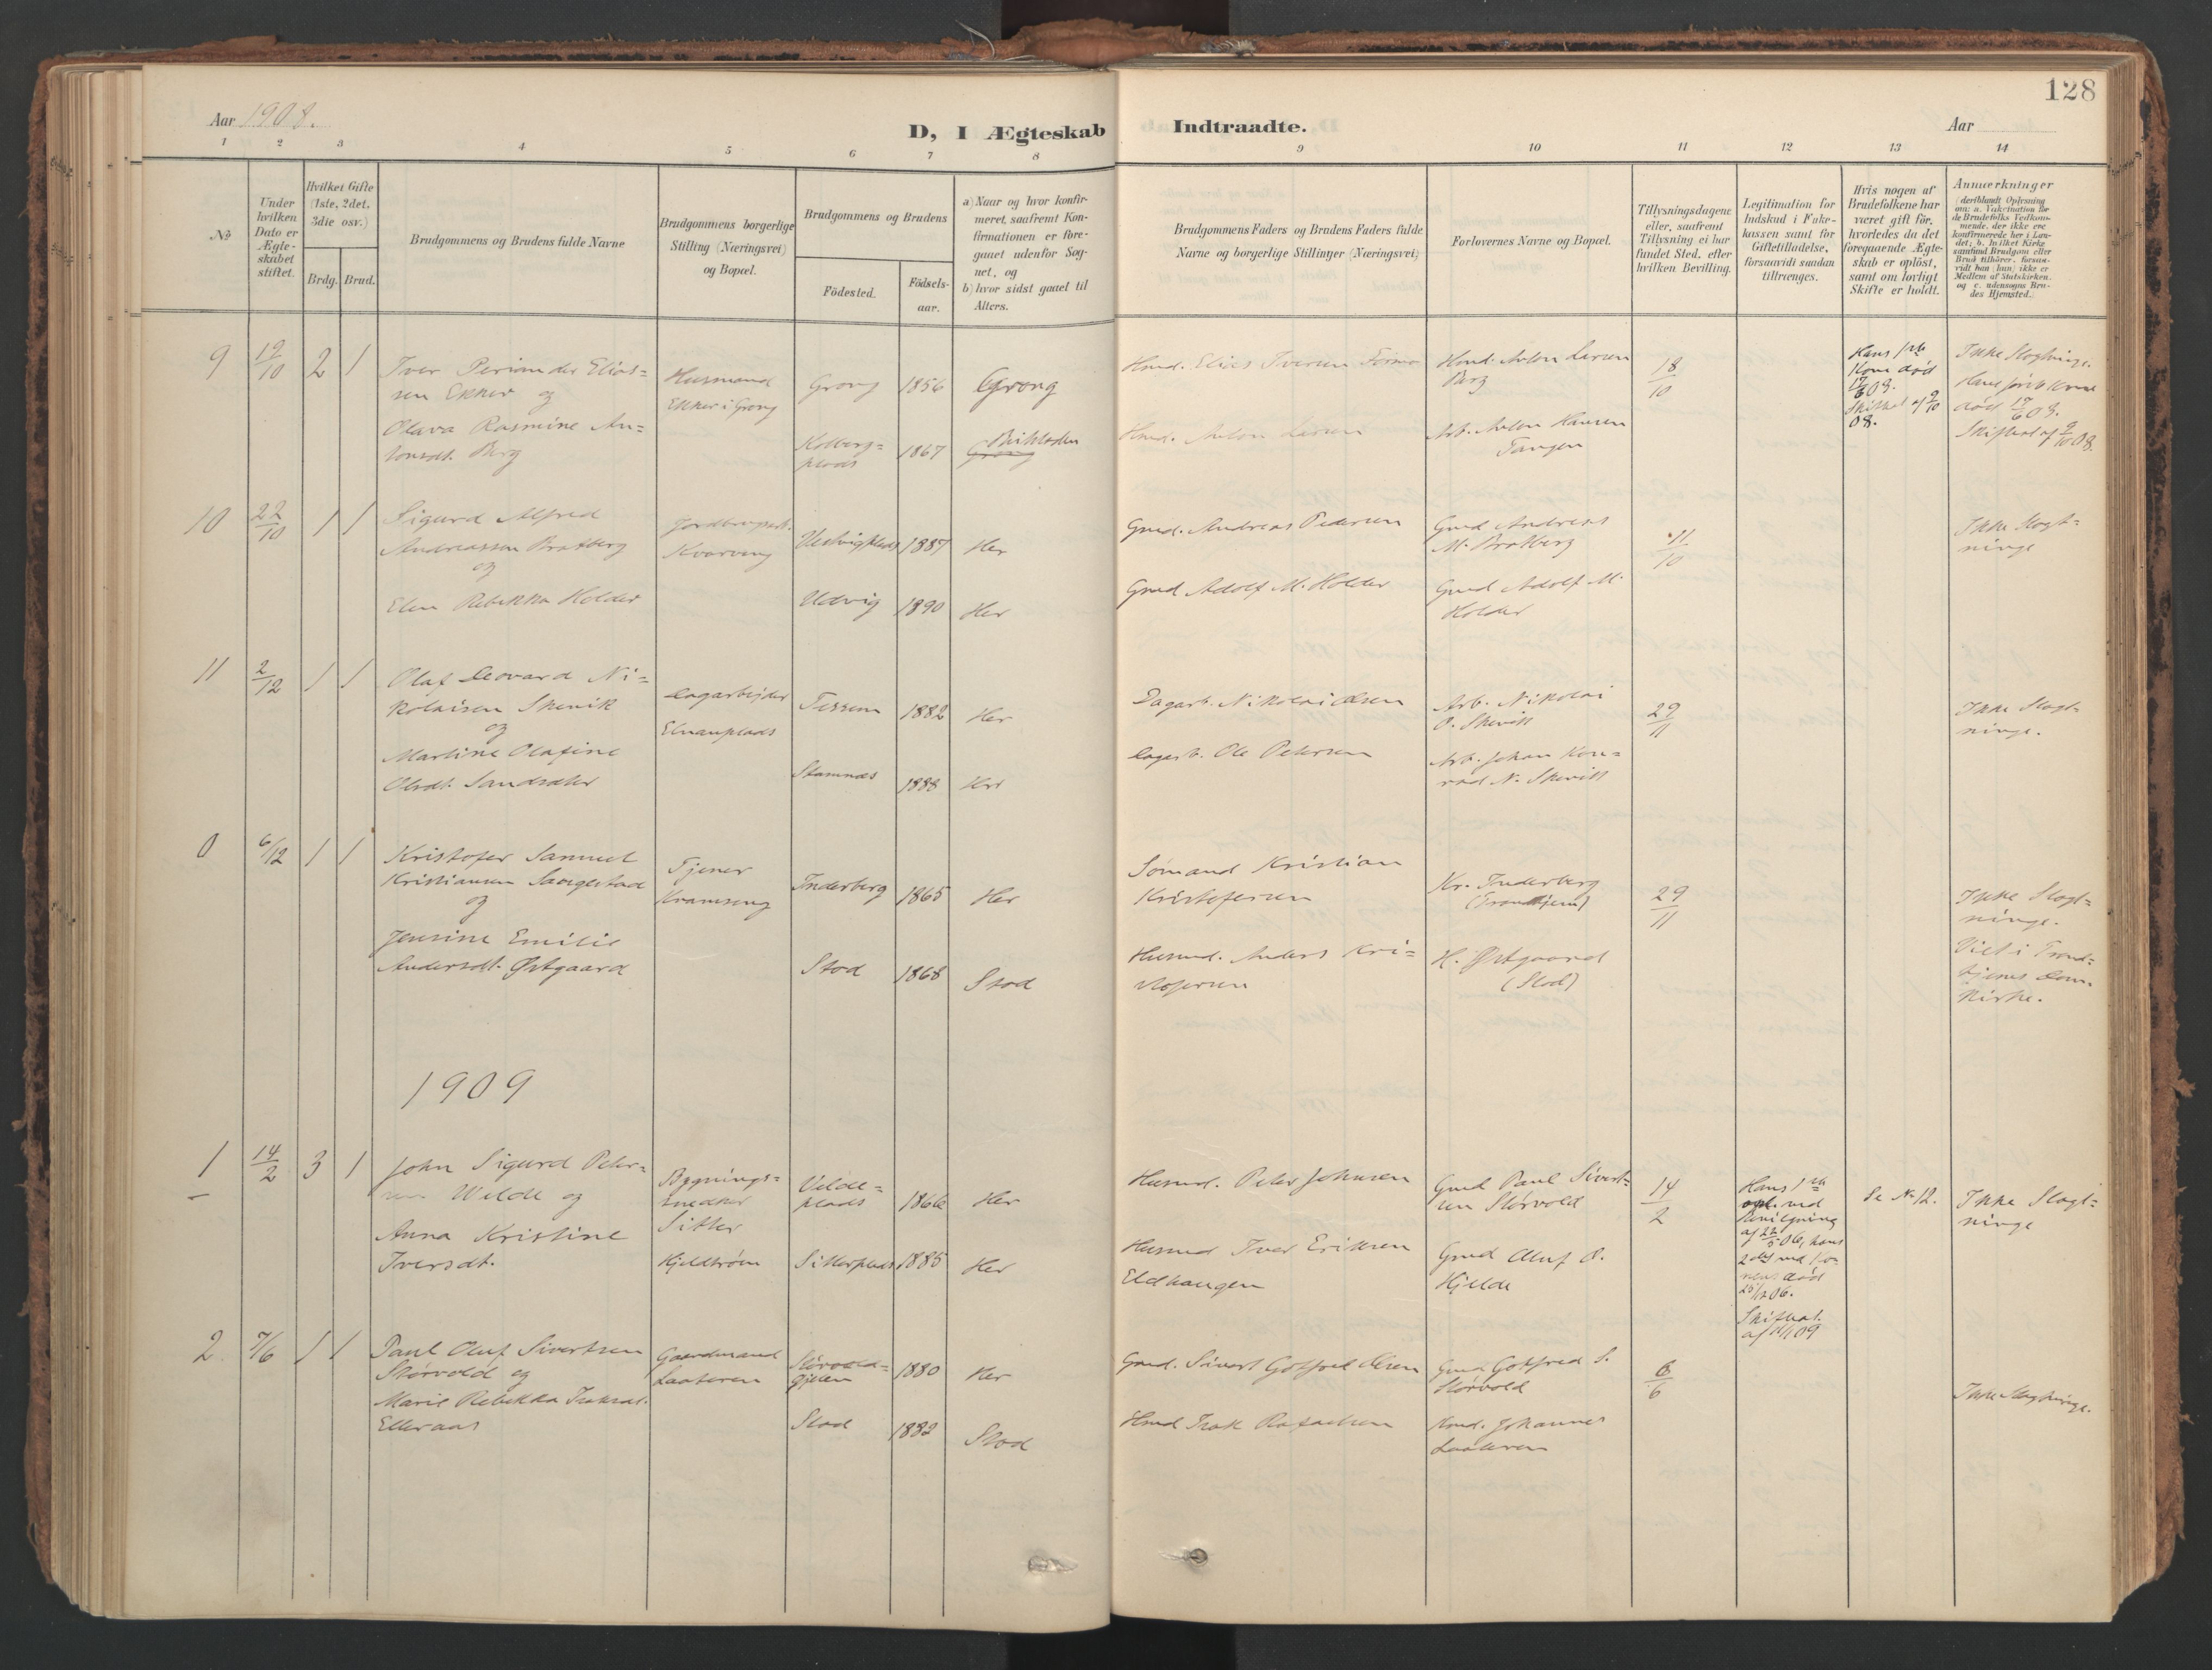 128
Aar 1908.
D, I Ægteskab Indtraadte.
Aar
1 2 3 4 5 6 7 8 9 10 11 12 13 14
No
Under hvilken Dato er Ægteskabet stiftet.
Hvilket Gifte (1ste, 2det, 3die osv.)
Brdg. Brud.
Brudgommens og Brudens fulde Navne
Brudgommens borgerlige Stilling (Næringsvei) og Bopæl.
Brudgommens og Brudens
Födested. Födsels-aar.
a) Naar og hvor konfirmeret, saafremt Konfirmationen er foregaaet udenfor Sognet, og
b) hvor sidst gaaet til Alters.
Brudgommens Faders og Brudens Faders fulde Navne og borgerlige Stillinger (Næringsvei)
Forlovernes Navne og Bopæl.
Tillysningsdagene eller, saafremt Tillysning ei har fundet Sted, efter hvilken Bevilling.
Legitimation for Indskud i Enkekassen samt for Giftetilladelse, forsaavidt saadan tiltrænges.
Hvis nogen af Brudefolkene har været gift för, hvorledes da det foregaaende Ægteskab er oplöst, samt om lovligt Skifte er holdt.
Anmærkninger (deriblandt Oplysning om: a. Vakcination for de Brudefolks Vedkommende, der ikke ere konfirmerede her i Landet; b. hvilket Kirkesamfund Brudgom eller Brud tilhörer, forsaavidt han (hun) ikke er Medlem af Statskirken, og c. udensogns Brudes Hjemsted.)
9 19/10 2 1
Iver Periander Elias=
sen Ekker og
Olava Rasmine An=
tonsdt. Berg
Husmand
Ekker i Grong
Grong 1856 Grong
Kolberg=
plads 1867
Hmd. Elias Iversen Formo
Hmd. Anton Larsen
Hmd. Anton Larsen
Berg
Arb. Anton Hansen
Tangen
18/10
Hans 1ste
Kone død
17/6 08.
Skifteat. af 9/10
08.
Ikke Slegtninge.
Hans første Kone
død 17/6 08.
Skifteat af 9/10 08.
10 22/10 1 1
Sigurd Alfred
Andreassen Bratberg
og
Elen Rebekka Holder
Kvarving
1887 Her
Udvig 1890 Her
Gmd. Andreas Pedersen
Gmd Adolf M. Holder
Gmd Andreas
M. Bratberg
Gmd Adolf M.
Holder
11/10
Ikke Slegt=
ninge
11 2/12 1 1
Olaf Leovard Ni=
kolaisen Skevik
og
Martine Olafine
Olsdt. Sandsæter
Dagarbejder
Elnanplads
Tessem 1882 Her
Stamnes 1888 Her
Dagarb. Nikolai Olsen
Dagarb. Ole Petersen
Arb. Nikolai
O. Skevik
Arb. Johan Kon=
rad N. Skevik
29/11
Ikke Slegt=
ninge.
0 6/12 1 1
Kristofer Samuel
Kristiansen Saugestad
og
Jensine Emilie
Andersdt. Østgaard
Tjener
Kvamseng
Inderberg 1865 Her
Stod 1868 Stod
Sømand Kristian
Kristofersen
Husmd. Anders Kri=
stofersen
Kr. Inderberg
(Trondhjem)
H. Østgaard
(Stod)
29/11
Ikke Slegt=
ninge.
Viet i Trond=
hjems Dom=
kirke.
1909
1 14/2 3 1
John Sigurd Peter=
sen Welde og
Anna Kristine
Iversdt.
Bygnings=
snedker
Sitter
Velde=
plads 1866 Her
Sitterplads 1885 Her
Husmd. Peter Johnsen
Husmd Iver Eriksen
Eldhaugen
Gmd Paul Sivert=
sen Størvold
Gmd Oluf O.
Hjelde
14/2
Hans 1ste
opl. ved
Bevilgning
af 22/5 06, hans
2det ved Ko=
nens død
25/12 06.
Skifteat.
Se No 12.
Ikke Slegt=
ninge
2 7/6 1 1
Paul Oluf Sivertsen
Størvold og
Marie Rebekka Isaksdt.
Elleraas
Gaardmand
1880 Her
Stod 1882 Stod
Gmd. Sivert Gotfred Olsen
Hmd Isak Rafaelsen
Gmd Gotfred S.
Størvold
Hmd. Johannes
6/6
Ikke Slegtninge.